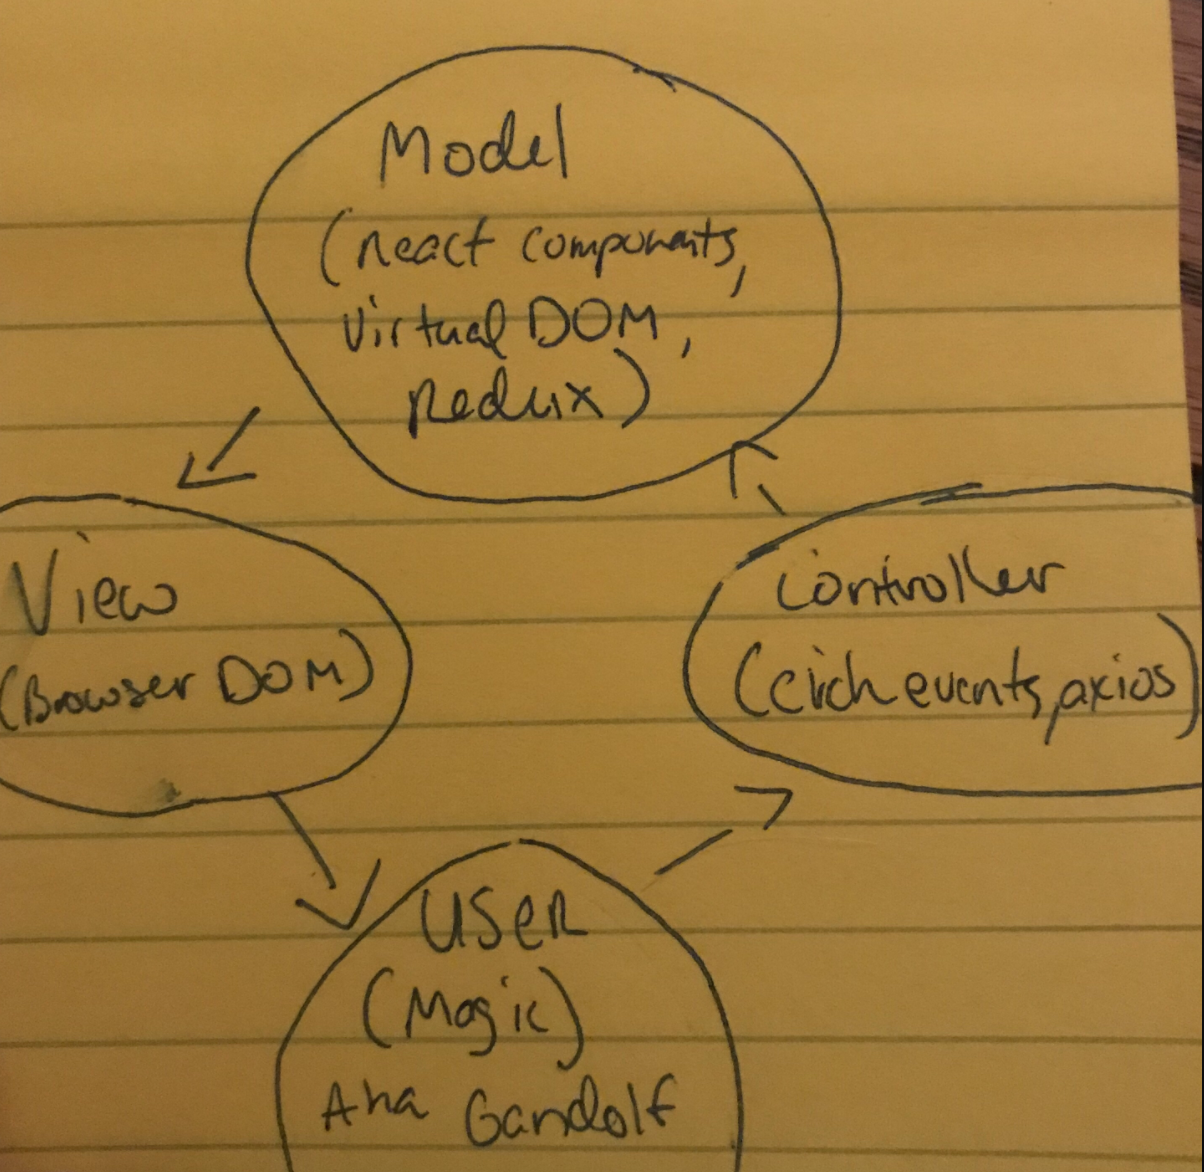 Model
(React components,
Virtual DOM,
Redux)
View
(Browser DOM)
Controller
(click events, axios)
USER
(Magic)
Aka Gandolf